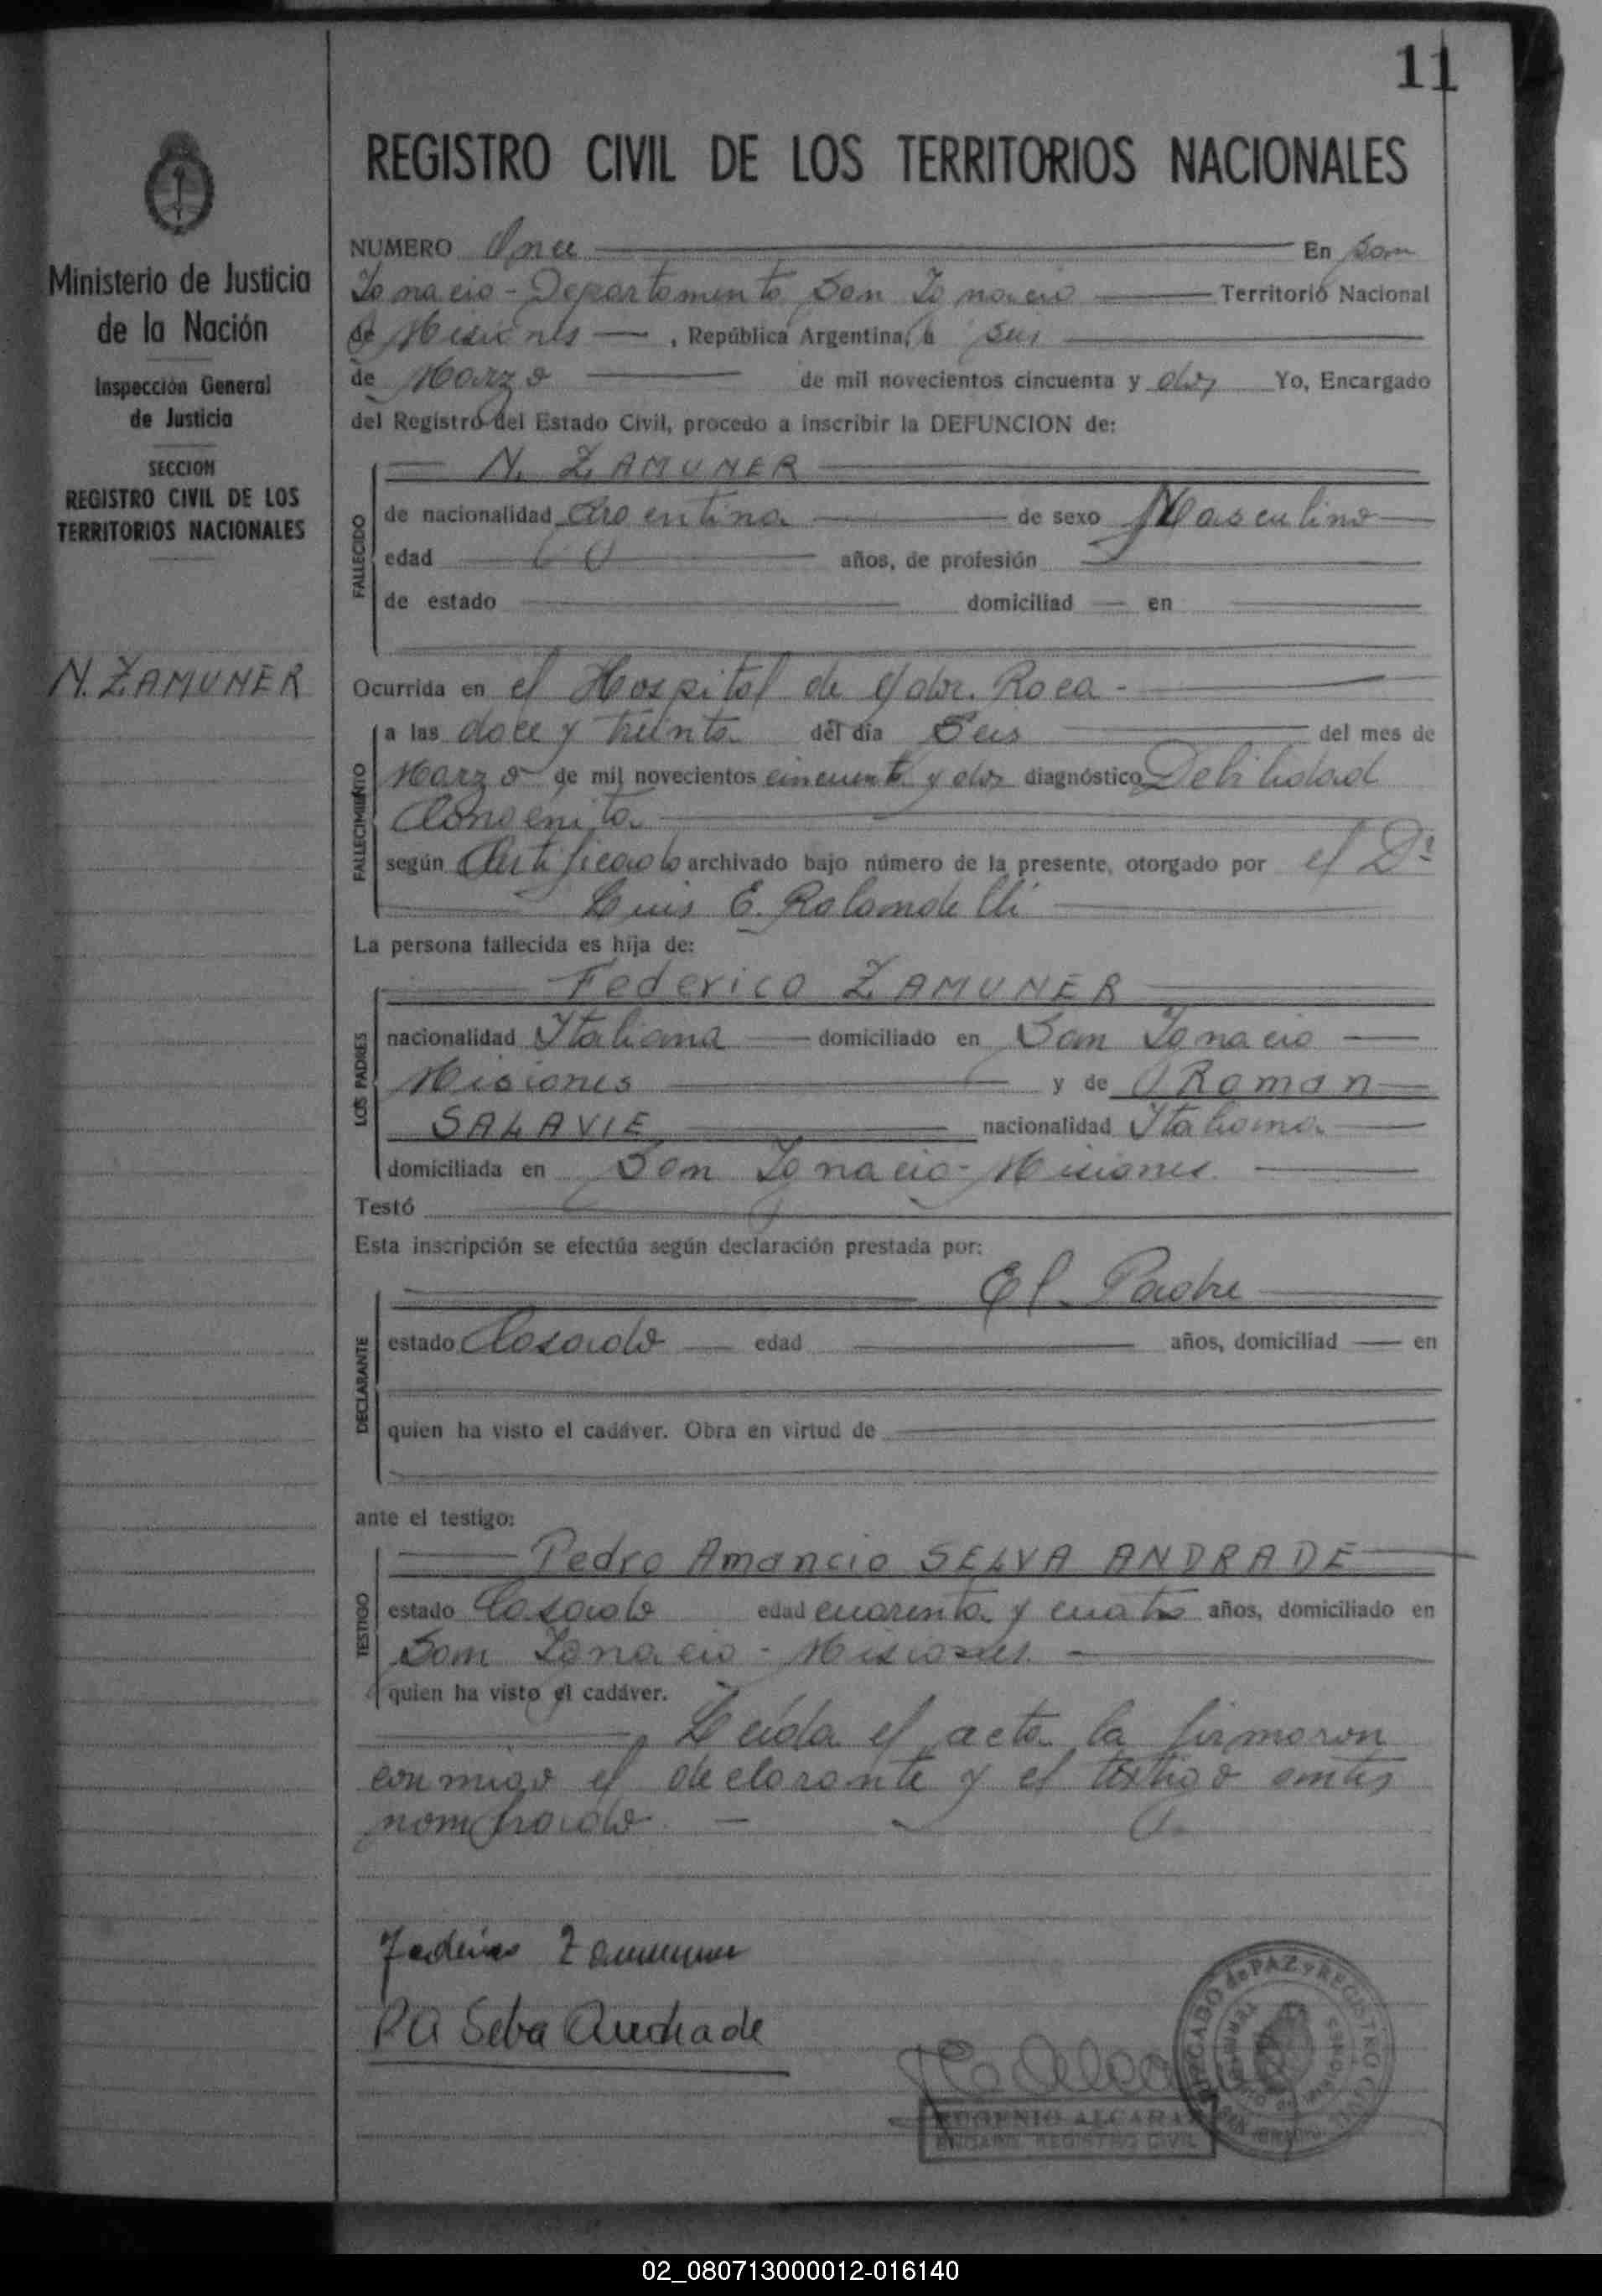 11
REGISTRO CIVIL DE LOS TERRITORIOS NACIONALES
Ministerio de Justicia
de la Nación
Inspección General
de Justicia
SECCION
REGISTRO CIVIL DE LOS
TERRITORIOS NACIONALES
N. ZAMUNER
NUMERO Once En San
Ignacio - Departamento San Ignacio Territorio Nacional
de Misiones , República Argentina, a seis
de Marzo de mil novecientos cincuenta y dos Yo, Encargado
del Registro del Estado Civil, procedo a inscribir la DEFUNCION de:
N. ZAMUNER
FALLECIDO
de nacionalidad Argentina de sexo Masculino
edad años, de profesión
de estado domiciliad en
Ocurrida en el Hospital de Gdor. Roca -
FALLECIMIENTO
a las doce y treinta del día Seis del mes de
Marzo de mil novecientos cincuenta y dos diagnóstico Debilidad
Congénita
según Certificado archivado bajo número de la presente, otorgado por el Dr
Luis E. Rolandelli
La persona fallecida es hija de:
LOS PADRES
Federico ZAMUNER
nacionalidad Italiana domiciliado en San Ignacio
Misiones y de Roman
SALAVIE nacionalidad Italiana
domiciliada en San Ignacio - Misiones.
Testó
Esta inscripción se efectúa según declaración prestada por:
DECLARANTE
El Padre
estado Casado edad años, domiciliad en
quien ha visto el cadáver. Obra en virtud de
ante el testigo:
TESTIGO
Pedro Amancio SELVA ANDRADE
estado Casado edad cuarenta y cuatro años, domiciliado en
San Ignacio - Misiones. -
quien ha visto el cadáver.
Leída el acta la firmaron
conmigo el declarante y el testigo antes
nombrado. -
Federico Zamuner
PA Selva Andrade
EUGENIO ALCARAZ
ENCARG. REGISTRO CIVIL
JUZGADO de PAZ y REGISTRO CIVIL
02_080713000012-016140